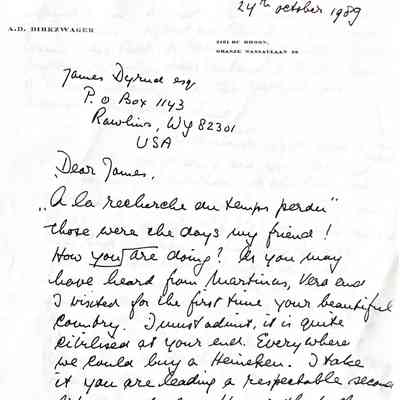 24th October 1989
A.D. DIRKZWAGER
3161 HC RHOON,
ORANJE NASSAULAAN 20
James Dyrud esq
P.O Box 1143
Rawlins, Wy 82301
USA
Dear James,
„A la recherche du temps perdu"
those were the days my friend!
How you are doing? As you may
have heard from Martinus, Vera and
I visited for the first time your beautiful
country. I must admit, it is quite
civilised at your end. Everywhere
we could buy a Heineken. I take
it you are leading a respectable second